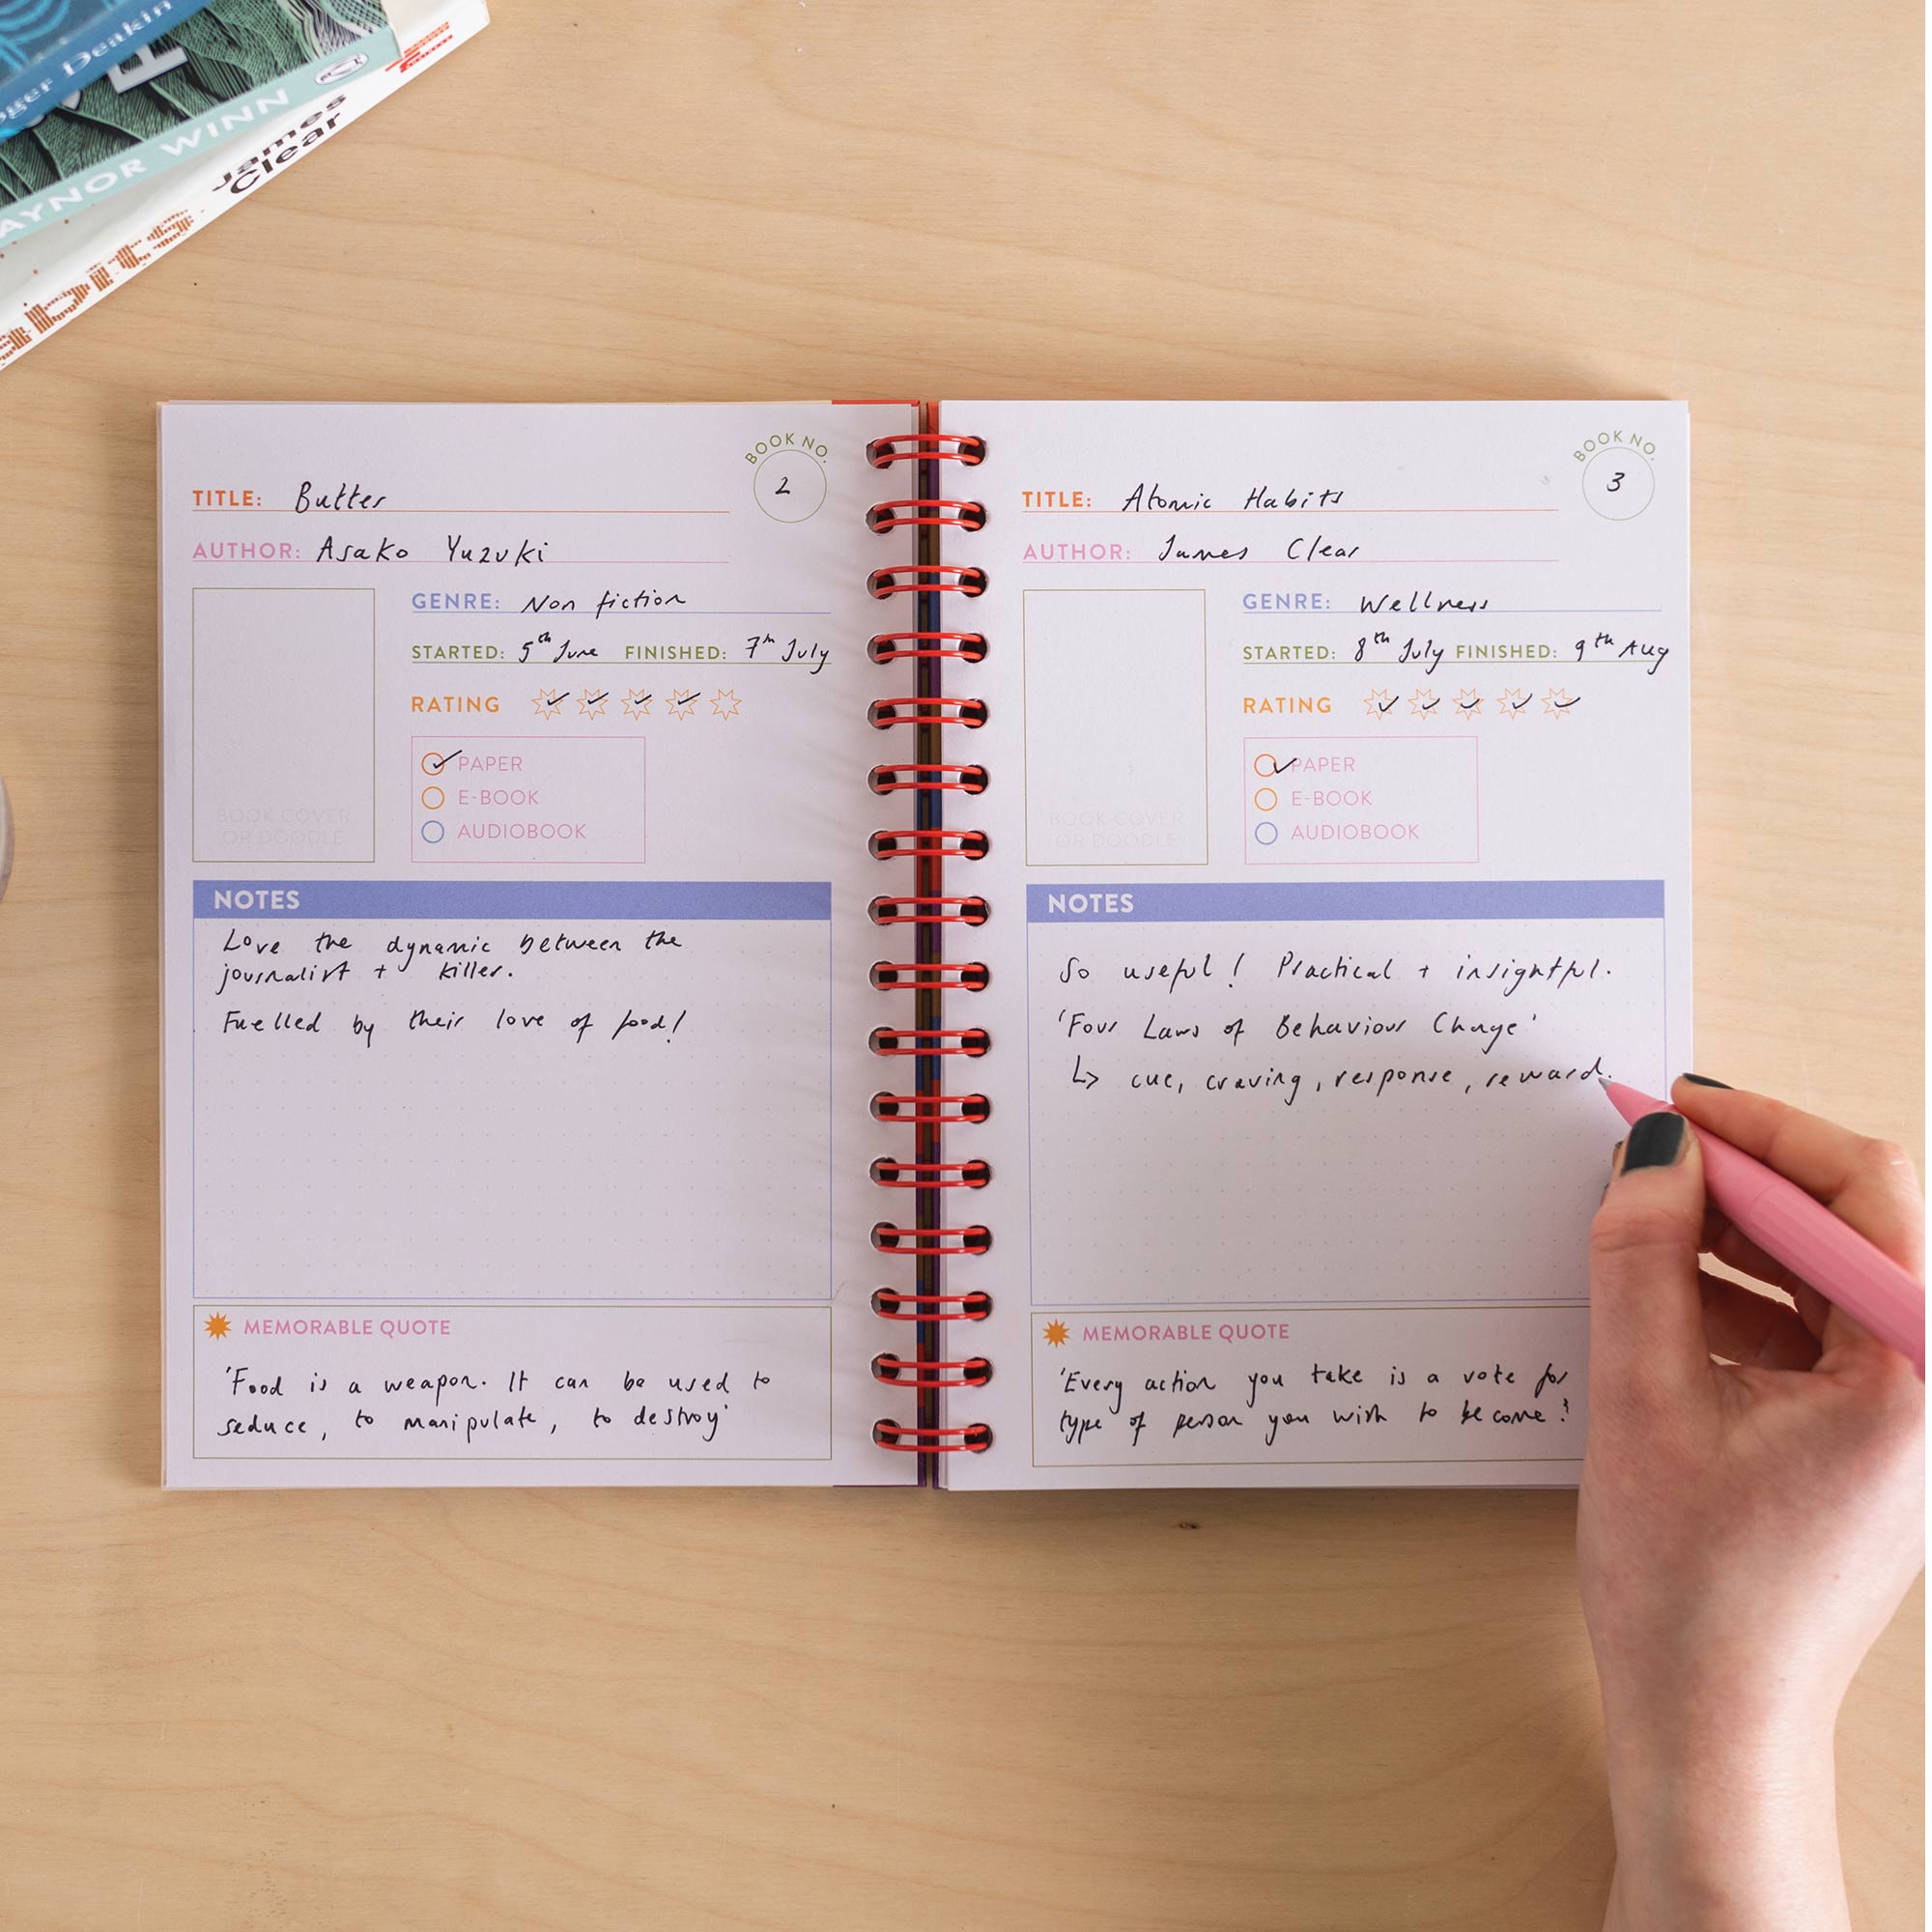 oger Deakin
AYNOR WINN
James
Clear
abits
BOOK NO.
2
TITLE: Butter
AUTHOR: Asako Yuzuki
GENRE: Non fiction
STARTED: 5th June FINISHED: 7th July
RATING
PAPER
E-BOOK
AUDIOBOOK
BOOK COVER
OR DOODLE
NOTES
Love the dynamic between the
journalist + killer.
Fuelled by their love of food!
MEMORABLE QUOTE
'Food is a weapon. It can be used to
seduce, to manipulate, to destroy'
BOOK NO.
3
TITLE: Atomic Habits
AUTHOR: James Clear
GENRE: Wellness
STARTED: 8th July FINISHED: 9th Aug
RATING
PAPER
E-BOOK
AUDIOBOOK
BOOK COVER
OR DOODLE
NOTES
So useful! Practical + insightful.
'Four Laws of Behaviour Change'
↳ cue, craving, response, reward.
MEMORABLE QUOTE
'Every action you take is a vote for
type of person you wish to become.'